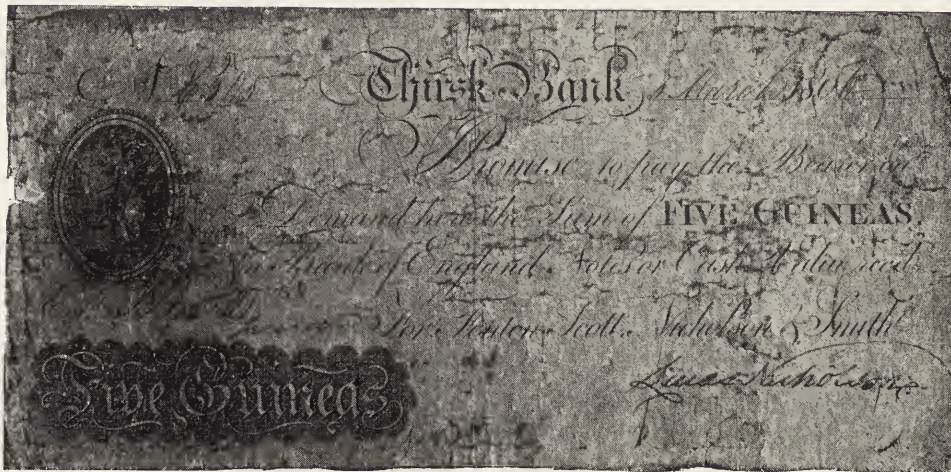 Thirsk Bank March 1806
Promise to pay the Bearer on
Demand here the Sum of FIVE GUINEAS,
in Bank of England Notes or Cash Value recd.
For Fenton, Scott, Nicholson & Smith
Five Guineas
Lucas Nicholson